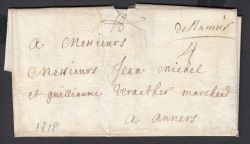 De Namur
4
A Messieurs
Messieurs Jean Michel
et guilliaume Veraether marchend
a anvers
1718